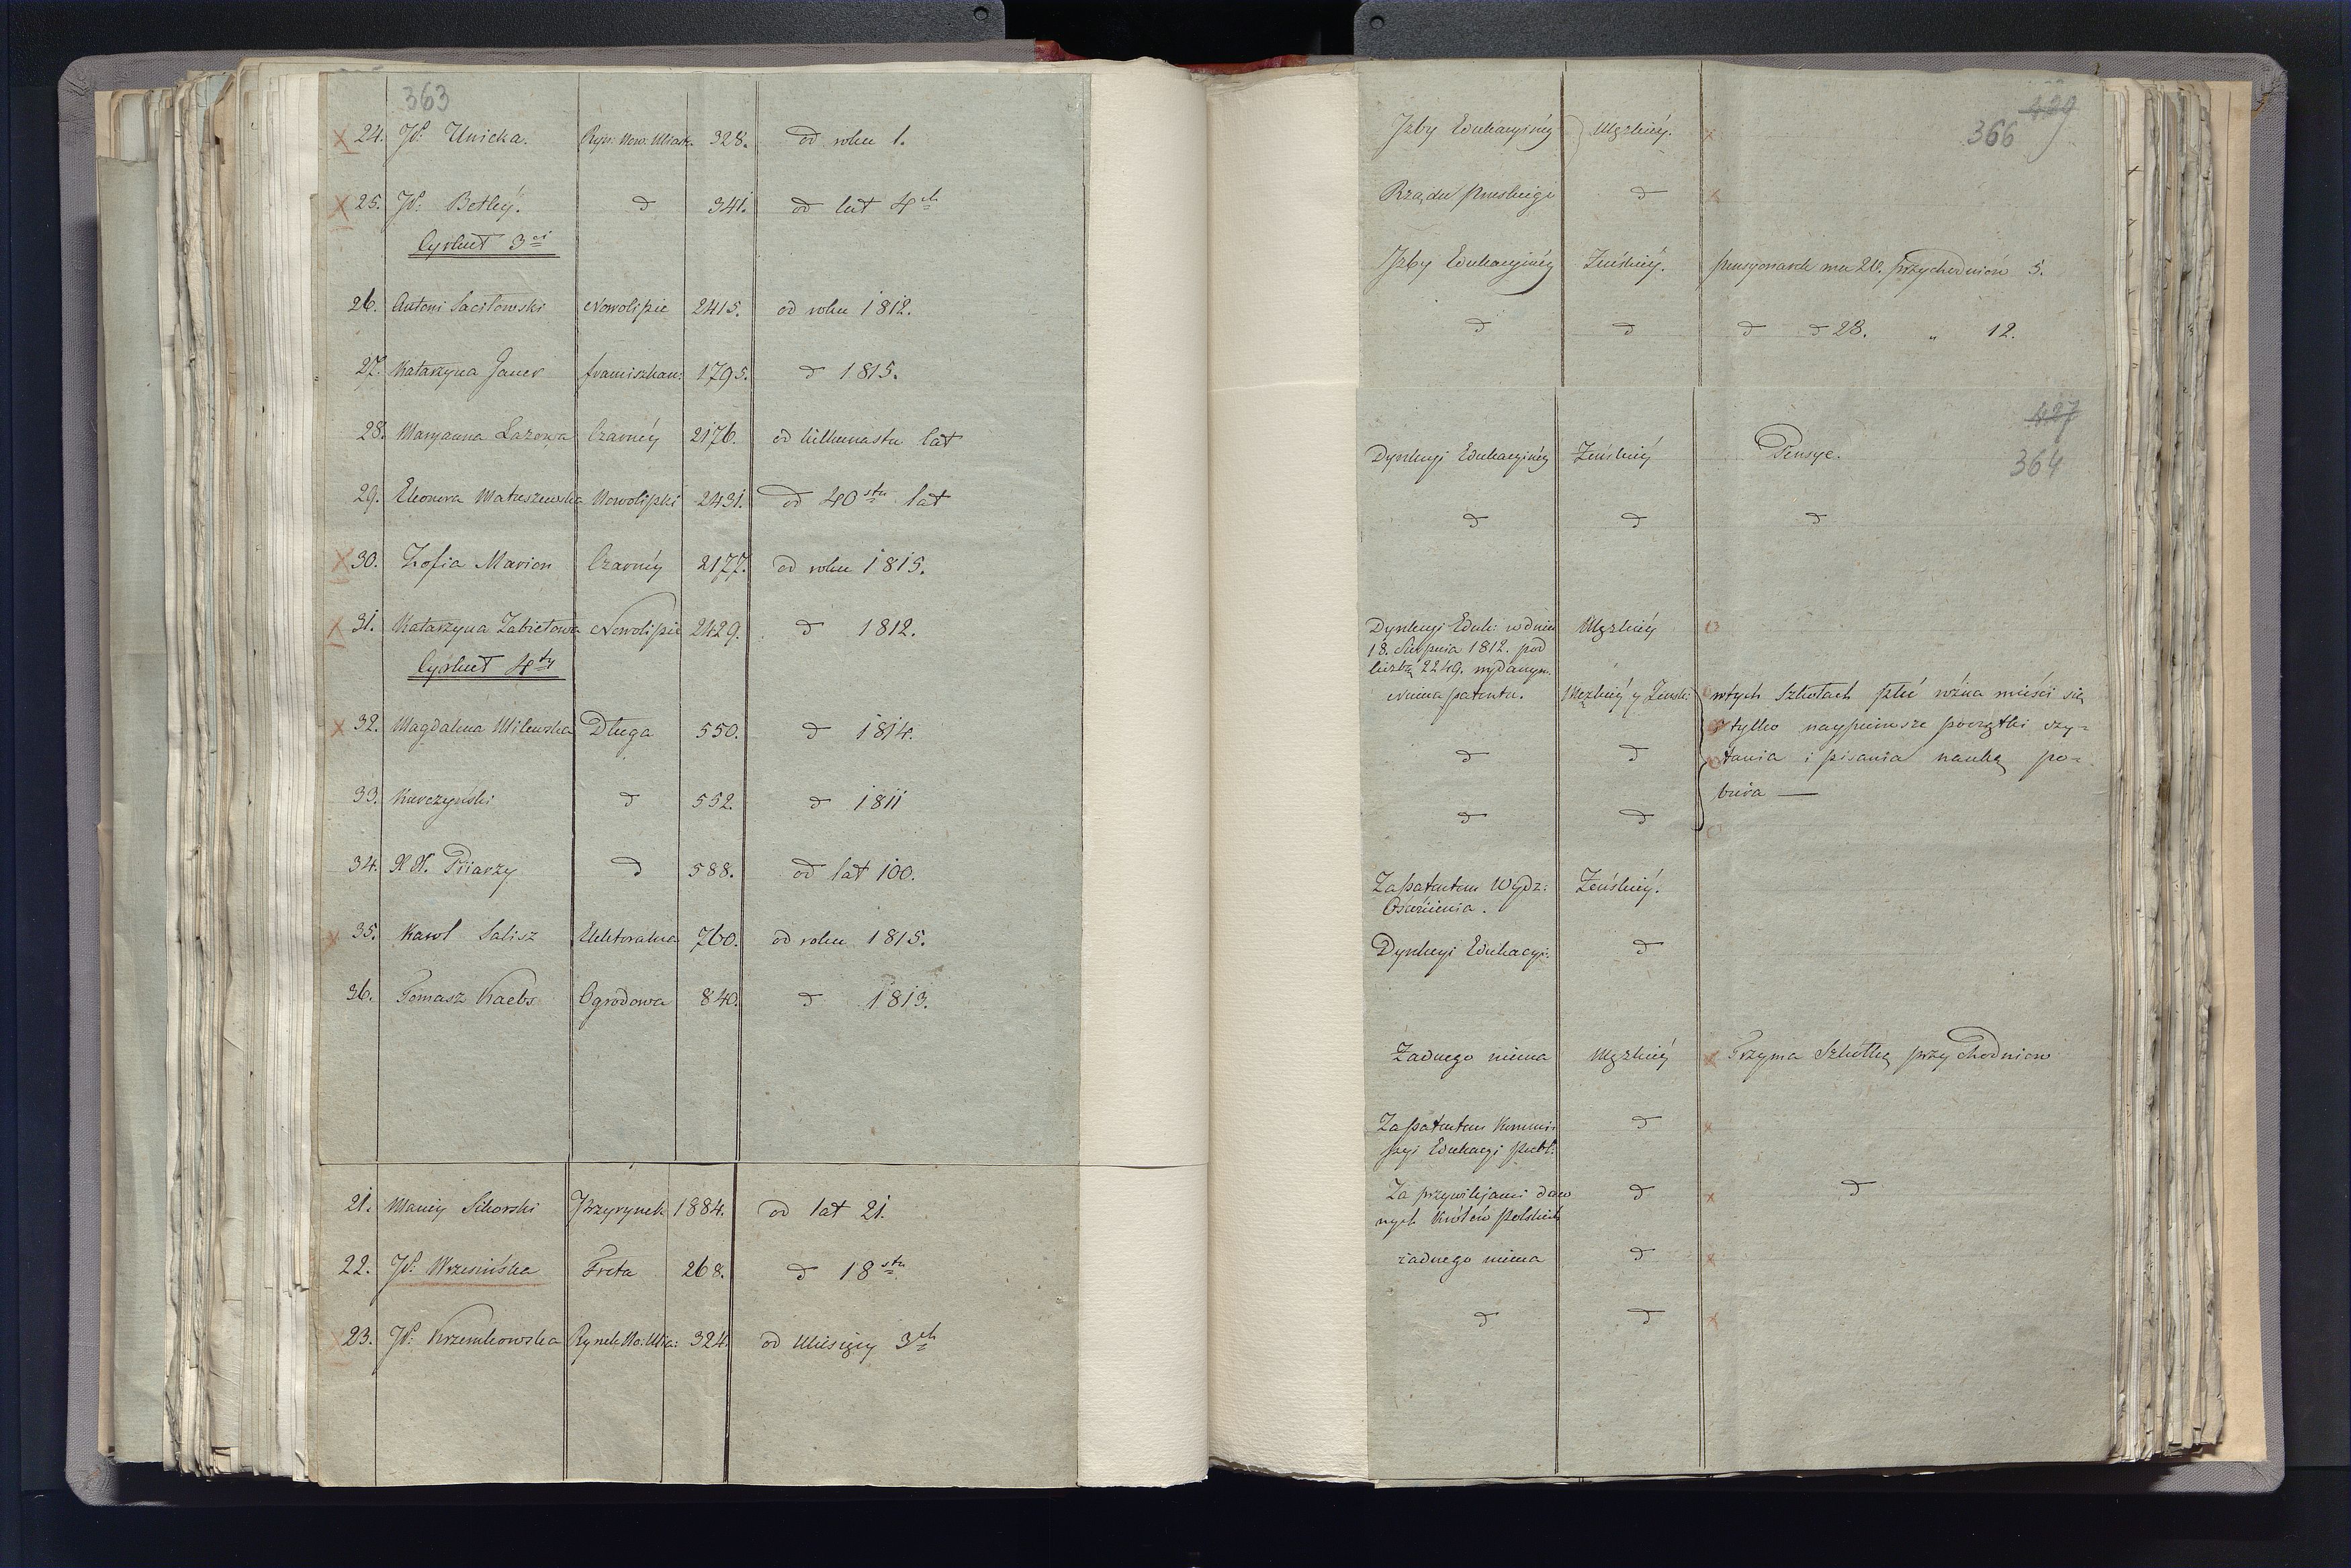 363
24. JP: Unicka. Ryn: Now: Miast. 328. od roku 1.
25. JP: Betléy. d 341. od lat 4ch
Cyrkuł 3ci
26. Antoni Nowolipie 2415. od roku 1812.
27. Katarzyna Janer franciszkan: 1795. d 1815.
28. Maryanna Lazowa Czarnéy 2176. od kilkunastu lat
29. Eleonora Matuszewska Nowolipki 2431. od 40stu lat
30. Zofia Marion Czarnéy 2177. od roku 1815.
31. Katarzyna Zabietowa Nowolipie 2429. d 1812.
Cyrkuł 4ty
32. Magdalena Milewska Długa 550. d 1814.
33. Kurczyński d 552. d 1811
34. XX. Piiarzy d 588. od lat 100.
35. Karol Salisz Elektoralna 760. od roku 1815.
36. Tomasz Kaebs Ogrodowa 840. d 1813.
21. Maciey Sikorski Przyrynek 1884. od lat 21.
22. JP: Wrzesińska Freta 268. d 18stu
23. JP: Krzemkowska Rynek No: Mia: 324. od Miesięcy 3ch
429
366
Izby Edukacyinéy Męzkiéy.
Rządu pruskiego d
Izby Edukacyinéy Żeńskiéy. pensyonarek ma 20. przychodnioń 5.
d d d d 28. " 12.
427
364
Dyrekcyi Edukacyinéy Żeńskiéy Pensye.
d d d
Dyrekcyi Eduk: w dniu Męzkiéy
18. Sierpnia 1812. pod
liczbą 2249. wydanym.
niema patentu. Męzkiéy y Żenski: w tych Szkołach płeć różna mieści się
tylko naypierwsze początki czy-
d d tania i pisania nauką po-
biera —
d d
Za patentem Wydz: Żeńskiéy.
Oświecenia.
Dyrekcyi Edukacyi: d
Żadnego niema Męzkiéy Trzyma Szkółkę przychodniow
Za patentem Kommis- d
syi Edukacyi publ:
Za przywilejami daw d d
nych Królów Polskich
żadnego niema d
d d